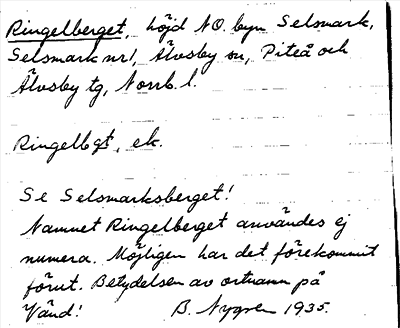 Ringelberget, höjd NO. byn Selsmark,
Selsmark nr 1, Älvsby sn, Piteå och
Älvsby tg, Norrb. l.
Ringelbgt, ek.
Se Selsmarksberget!
Namnet Ringelberget användes ej
numera. Möjligen har det förekommit
förut. Betydelsen av ortnamn på
Vänd! B. Nygren 1935.